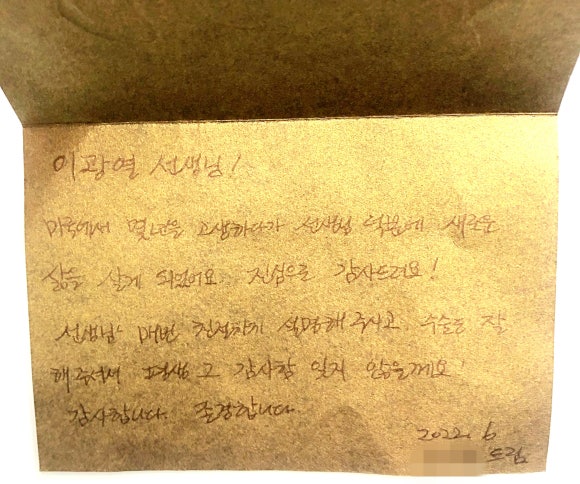 이광열 선생님!
미국에서 몇년을 고생하다가 선생님 덕분에 새로운
삶을 살게 되었어요. 진심으로 감사드려요!
선생님 매번 친절하게 설명해주시고 수술도 잘
해주셔서 평생 그 감사함 잊지 않을께요!
감사합니다. 존경합니다.
2022. 6
드림